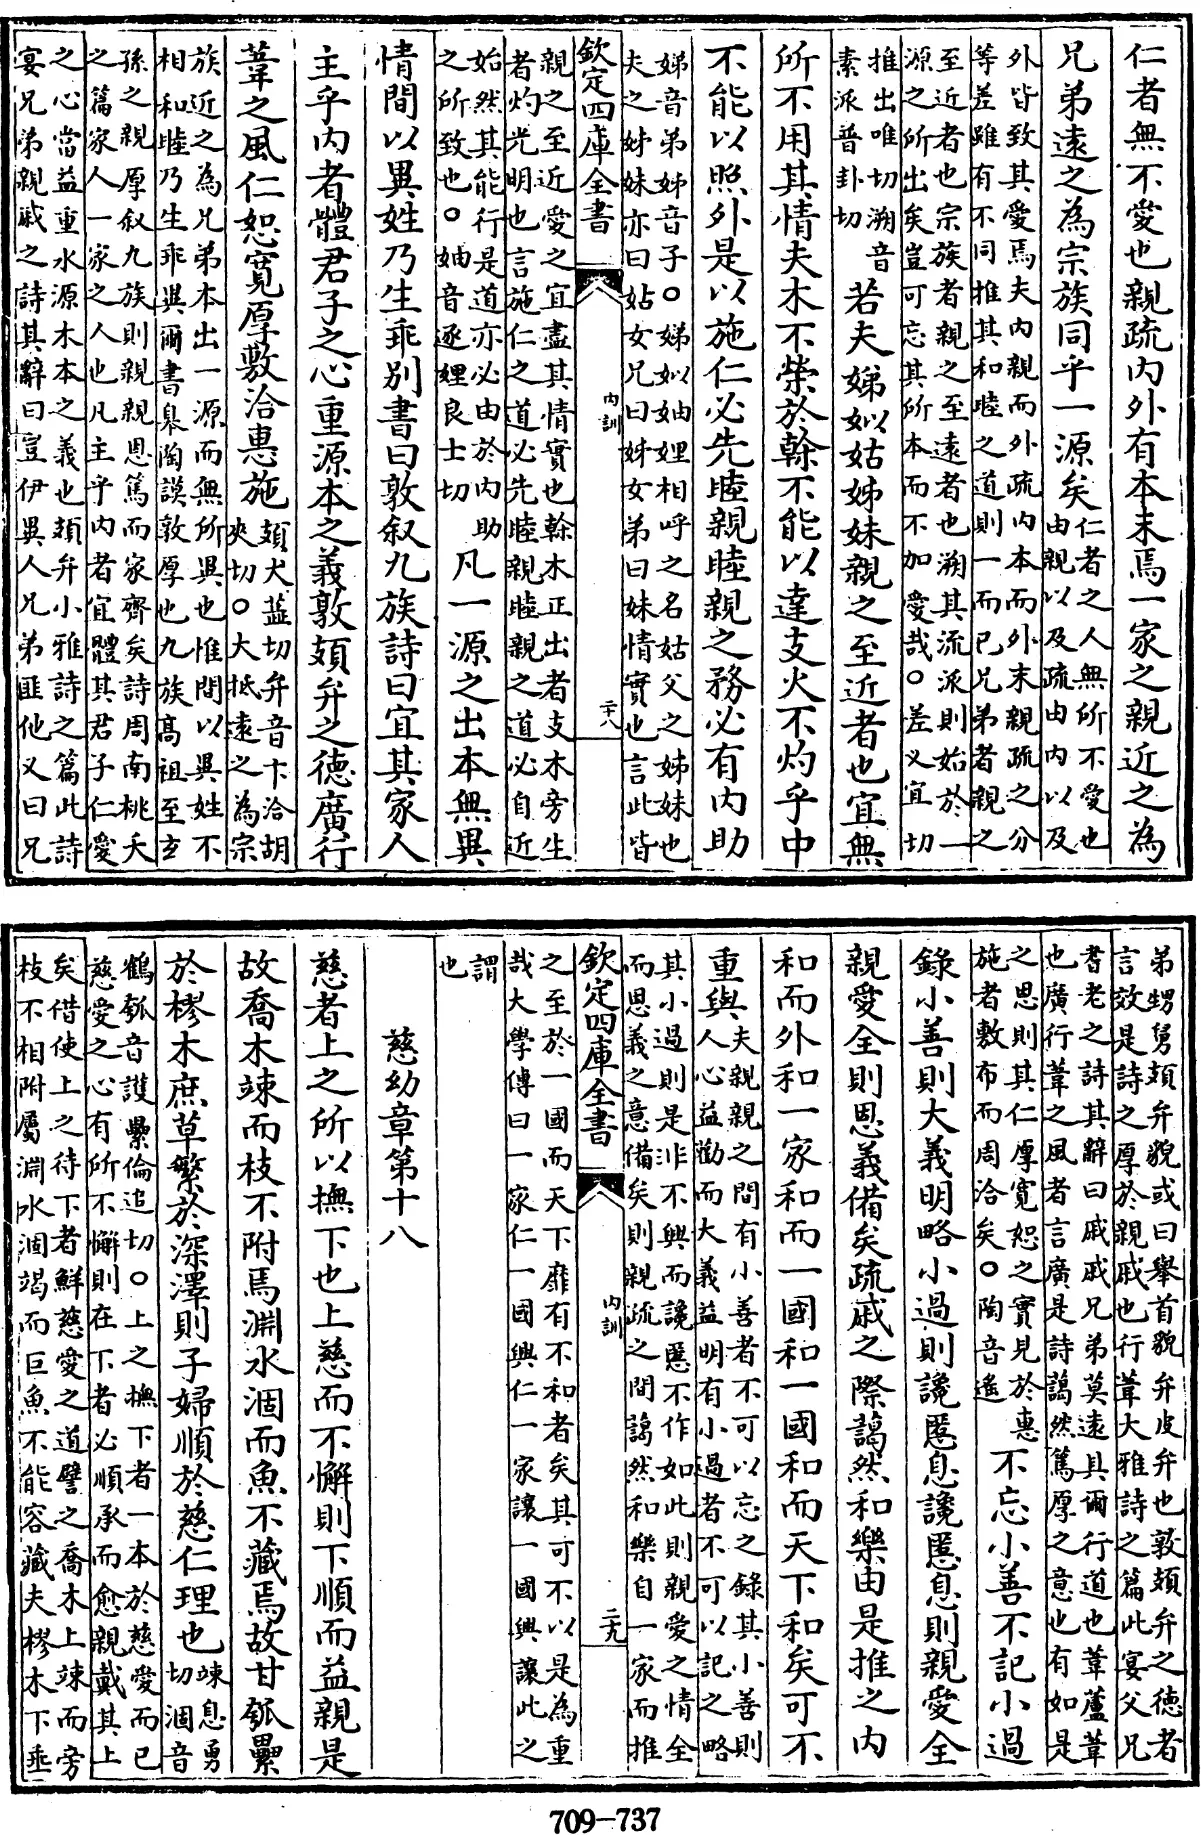 仁者無不愛也親疏内外有本末焉一家之親近之為
兄弟遠之為宗族同乎一源矣仁者之人無所不愛也
由親以及疏由内以及
外皆致其愛焉夫内親而外疏内本而外末親疏之分
等差雖有不同推其和睦之道則一而已兄弟者親之
至近者也宗族者親之至遠者也溯其流派則始於一
源之所出矣豈可忘其所本而不加愛哉○差乂宜切
推出唯切溯音
素派普卦切
若夫娣姒姑姊妹親之至近者也宜無
所不用其情夫木不榮於幹不能以達支火不灼乎中
不能以照外是以施仁必先睦親睦親之務必有内助
娣音弟姊音子○娣姒妯娌相呼之名姑父之姊妹也
夫之姊妹亦曰姑女兄曰姊女弟曰妹情實也言此皆
欽定四庫全書
内訓
二十八
親之至近愛之宜盡其情實也幹木正出者支木旁生
者灼光明也言施仁之道必先睦親睦親之道必自近
始然其能行是道亦必由於内助
之所致也○妯音逐娌良士切
凡一源之出本無異
情間以異姓乃生乖别書曰敦叙九族詩曰宜其家人
主乎内者體君子之心重源本之義敦頍弁之德廣行
葦之風仁恕寛厚敷洽惠施頍犬蘂切弁音卞洽胡
夾切○大抵遠之為宗
族近之為兄弟本出一源而無所異也惟間以異姓不
相和睦乃生乖異爾書皋陶謨敦厚也九族髙祖至玄
孫之親厚叙九族則親親恩篤而家齊矣詩周南桃夭
之篇家人一家之人也凡主乎内者宜體其君子仁愛
之心當益重水源木本之義也頍弁小雅詩之篇此詩
宴兄弟親戚之詩其辭曰豈伊異人兄弟匪他又曰兄
弟甥舅頍弁貌或曰舉首貌弁皮弁也敦頍弁之德者
言效是詩之厚於親戚也行葦大雅詩之篇此宴父兄
耆老之詩其辭曰戚戚兄弟莫遠具爾行道也葦蘆葦
也廣行葦之風者言廣是詩藹然篤厚之意也有如是
之恩則其仁厚寛恕之實見於惠
施者敷布而周洽矣○陶音遙
不忘小善不記小過
錄小善則大義明略小過則讒慝息讒慝息則親愛全
親愛全則恩義備矣疏戚之際藹然和樂由是推之内
和而外和一家和而一國和一國和而天下和矣可不
重與夫親親之間有小善者不可以忘之錄其小善則
人心益勸而大義益明有小過者不可以記之略
其小過則是非不興而讒慝不作如此則親愛之情全
而恩義之意備矣則親疏之間藹然和樂自一家而推
欽定四庫全書
内訓
二十九
之至於一國而天下靡有不和者矣其可不以是為重
哉大學傳曰一家仁一國興仁一家讓一國興讓此之
謂
也
慈幼章第十八
慈者上之所以撫下也上慈而不懈則下順而益親是
故喬木竦而枝不附焉淵水涸而魚不藏焉故甘瓠纍
於樛木庶草繁於深澤則子婦順於慈仁理也竦息勇
切涸音
鶴瓠音護纍倫追切○上之撫下者一本於慈愛而已
慈愛之心有所不懈則在下者必順承而愈親戴其上
矣借使上之待下者鮮慈愛之道譬之喬木上竦而旁
枝不相附屬淵水涸竭而巨魚不能容藏夫樛木下垂
709-737